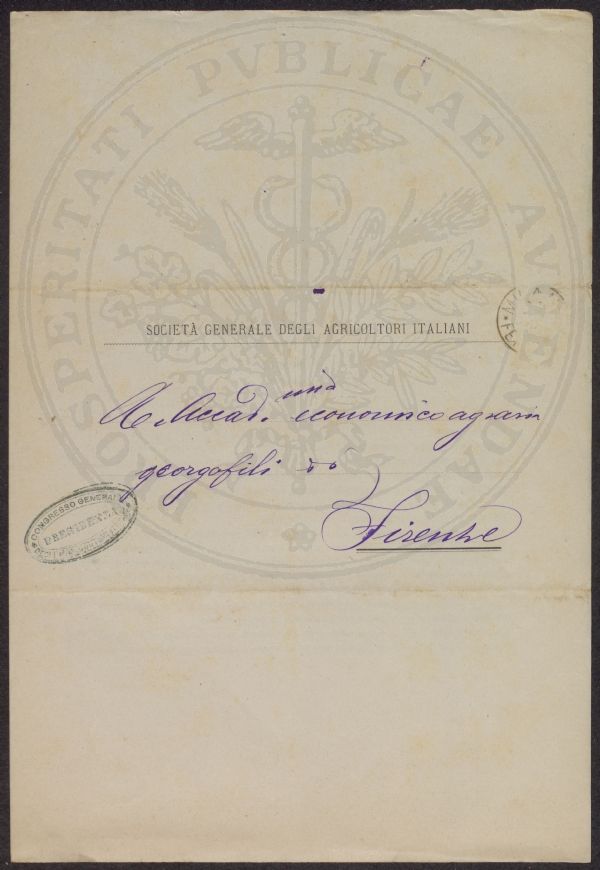 PROSPERITATI PVBLICAE AVGENDAE
SOCIETÀ GENERALE DEGLI AGRICOLTORI ITALIANI
R. Accad. economico agraria
georgofili
Firenze
CONGRESSO GENERALE
PRESIDENZA